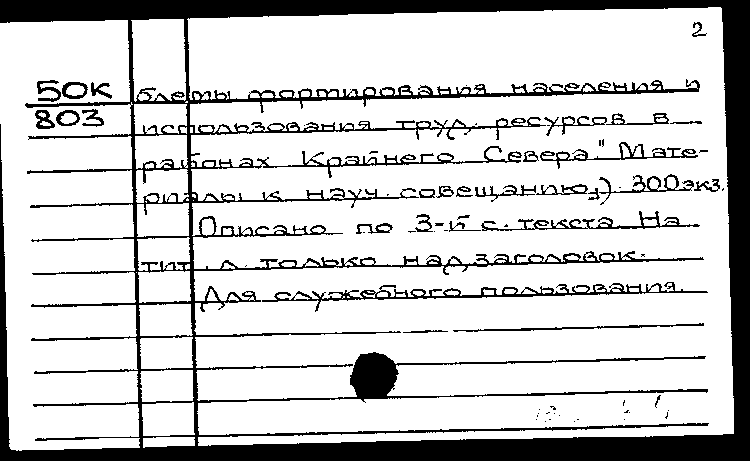 2
50К
803
блемы формирования населения и
использования труд. ресурсов в
районах Крайнего Севера." Мате-
риалы к науч. совещанию). 300экз.
Описано по 3-й с. текста. На
тит. л. только надзаголовок.
Для служебного пользования.